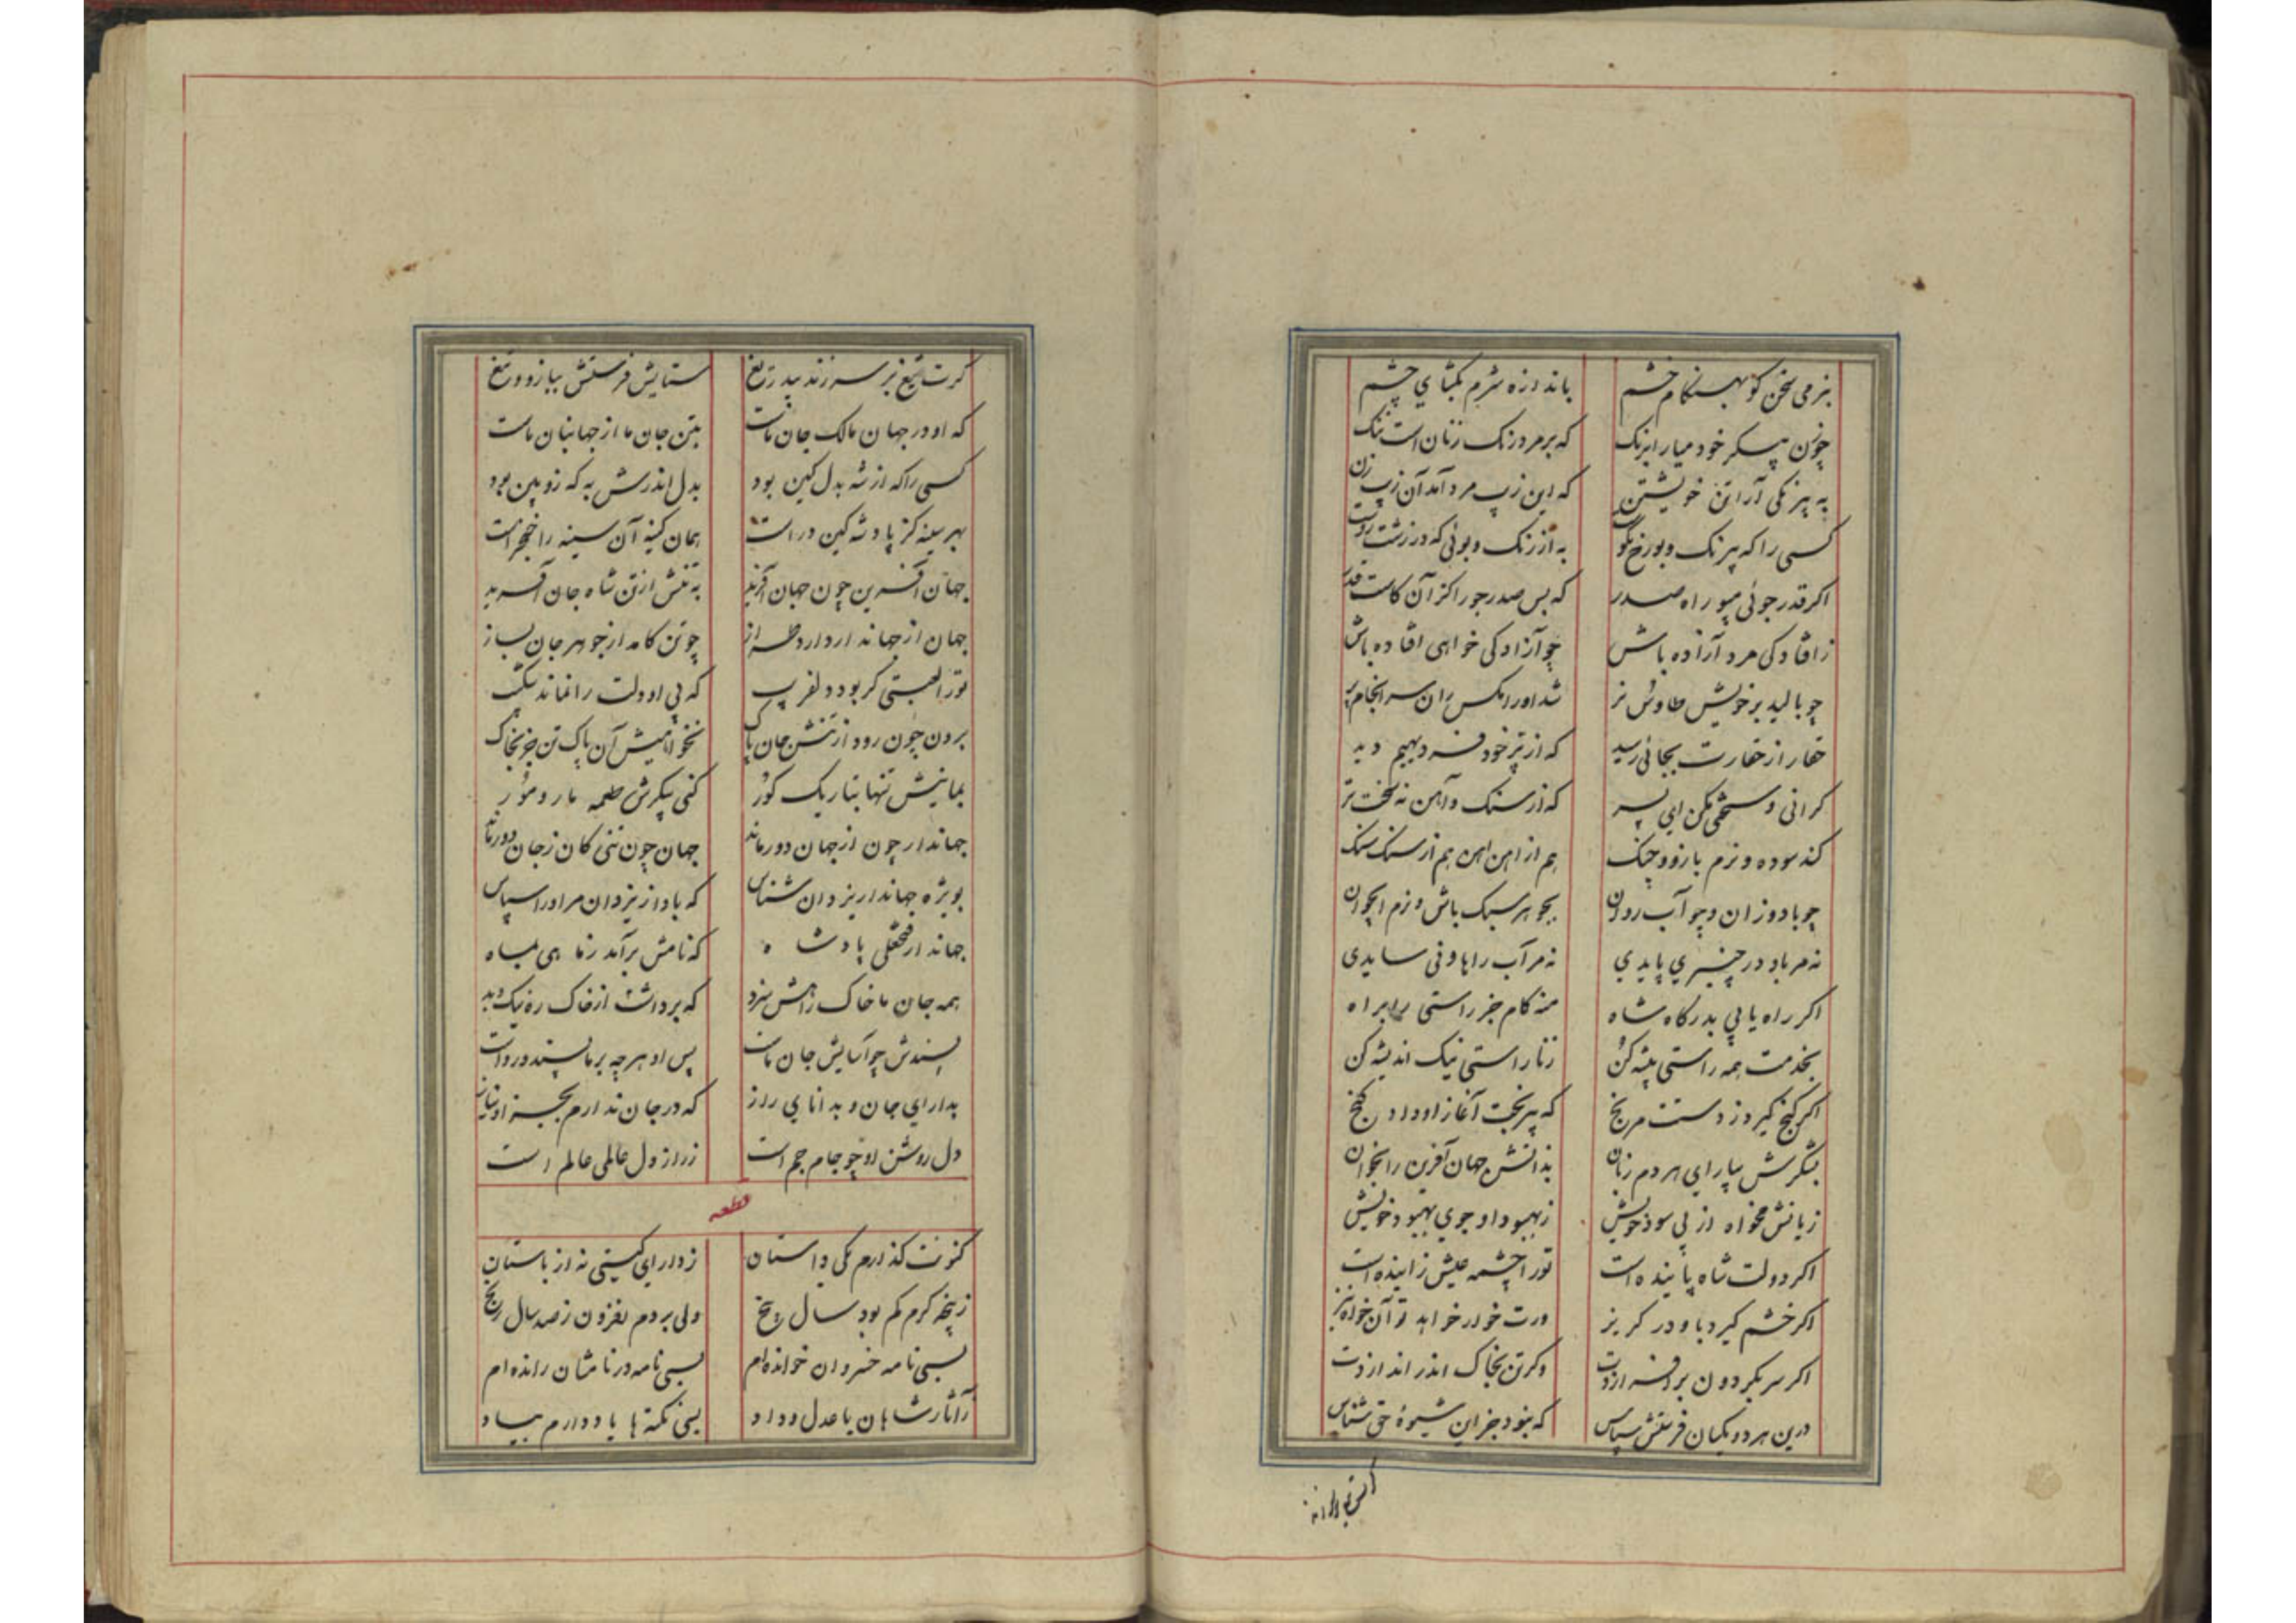 بنرمی سخن کو بهنکام خشم باندازه شرم بکشای چشم
چو زن پیکر خود میارا برنک که بر مرد رنک زنان است ننک
به پیرنکی آرا تن خویشتن که این زیب مرد آمد آن زیب زن
کسی را که بیرنک و بو رخ نکوست به از رنک و بوئی که در زشت روست
اکر قدر جوئی مپو راه صدر که بس صدر جو را کز آن کاست قدر
ز افتادکی مرد آزاده باش چو آزادکی خواهی افتاده باش
چو بالید بر خویش طاوس نر شد او را مکس ران سرانجام پر
خار از حقارت بجائی رسید که از پر خود فر دیهیم دید
کرانی و سختی مکن ای پسر که از سنک و آهن نه سخت تر
کند سوده و نرم بازو و چنک هم از آهن آهن هم از سنک سنک
چو باد وزان و چو آب روان بجوهر سبک باش و نرم ای جوان
نه مر باد در چنبری پایدی نه مر آب را هاونی سایدی
اکر راه یابی بدرکاه شاه منه کام جز راستی را براه
بخدمت همه راستی پیشه کن زنا راستی نیک اندیشه کن
اکر کنج کیرد ز دستت مرنج که بیرنجت آغاز او داد کنج
بشکرش بیارای هر دم زبان بدانش جهان آفرین را بخوان
زیانش مخواه از پی سود خویش ز بهبود او جوی بهبود خویش
اکر دولت شاه پاینده است تو را چشمه عیش زاینده است
اکر خشم کیرد باو در کریز ورت خوار خواهد تو آن خواه نیز
اکر سر بکردون برافرازدت وکر تن بخاک اندر اندازدت
درین هر دو یکسان فرستش سپاس که نبود جز این شیوهٔ حق شناس
کرت تیغ بر سر زند بیدریغ ستایش فرستش ببازو و تیغ
که او در جهان مالک جان ماست بتن جان ما از جهانبان ماست
کسی را که از شه بدل کین بود بدل اندرش به که زوبین بود
بهر سینه کز پادشه کین در است همان کینه آن سینه را خنجر است
جهان آفرین چون جهان آفرید به تنش از تن شاه جان آفرید
جهان از جهاندار دارد طراز چو تن کامد از جوهر جان بساز
تو را لعبتی کر بود دلفریب که بی او دلت را نماند شکیب
برون چون رود از تنش جان پاک نخواهیش آن پاک تن جز بخاک
بمانیش تنها بتاریک کور کنی پیکرش طعمه مار و مور
جهاندار چون از جهان دور ماند جهان چون تنی کان ز جان دور ماند
بویژه جهاندار یزدان شناس که باد از یزدان مر او را سپاس
جهاندار فتحعلی پادشاه که نامش برآمد ز ماهی بماه
همه جان ما خاک راهش سزد که برداشت از خاک ره نیک و بد
پسندش چو آسایش جان ماست پس او هرچه بر ما پسندد رواست
بدارای جان و بدانای راز که در جان ندارم بجز او نیاز
دل روشن او چو جام جم است ز راز دل عالمی عالم است
قطعه
کنونت کذارم یکی داستان ز دارای کیتی نه از باستان
ز پنجه کرم کم بود سال پنج ولی بردم افزون ز صد سال رنج
بسی نامه خسروان خوانده‌ام بسی نامه در نامشان رانده‌ام
ز آثار شاهان با عدل و داد بسی نکته‌ها یاد دارم بیاد